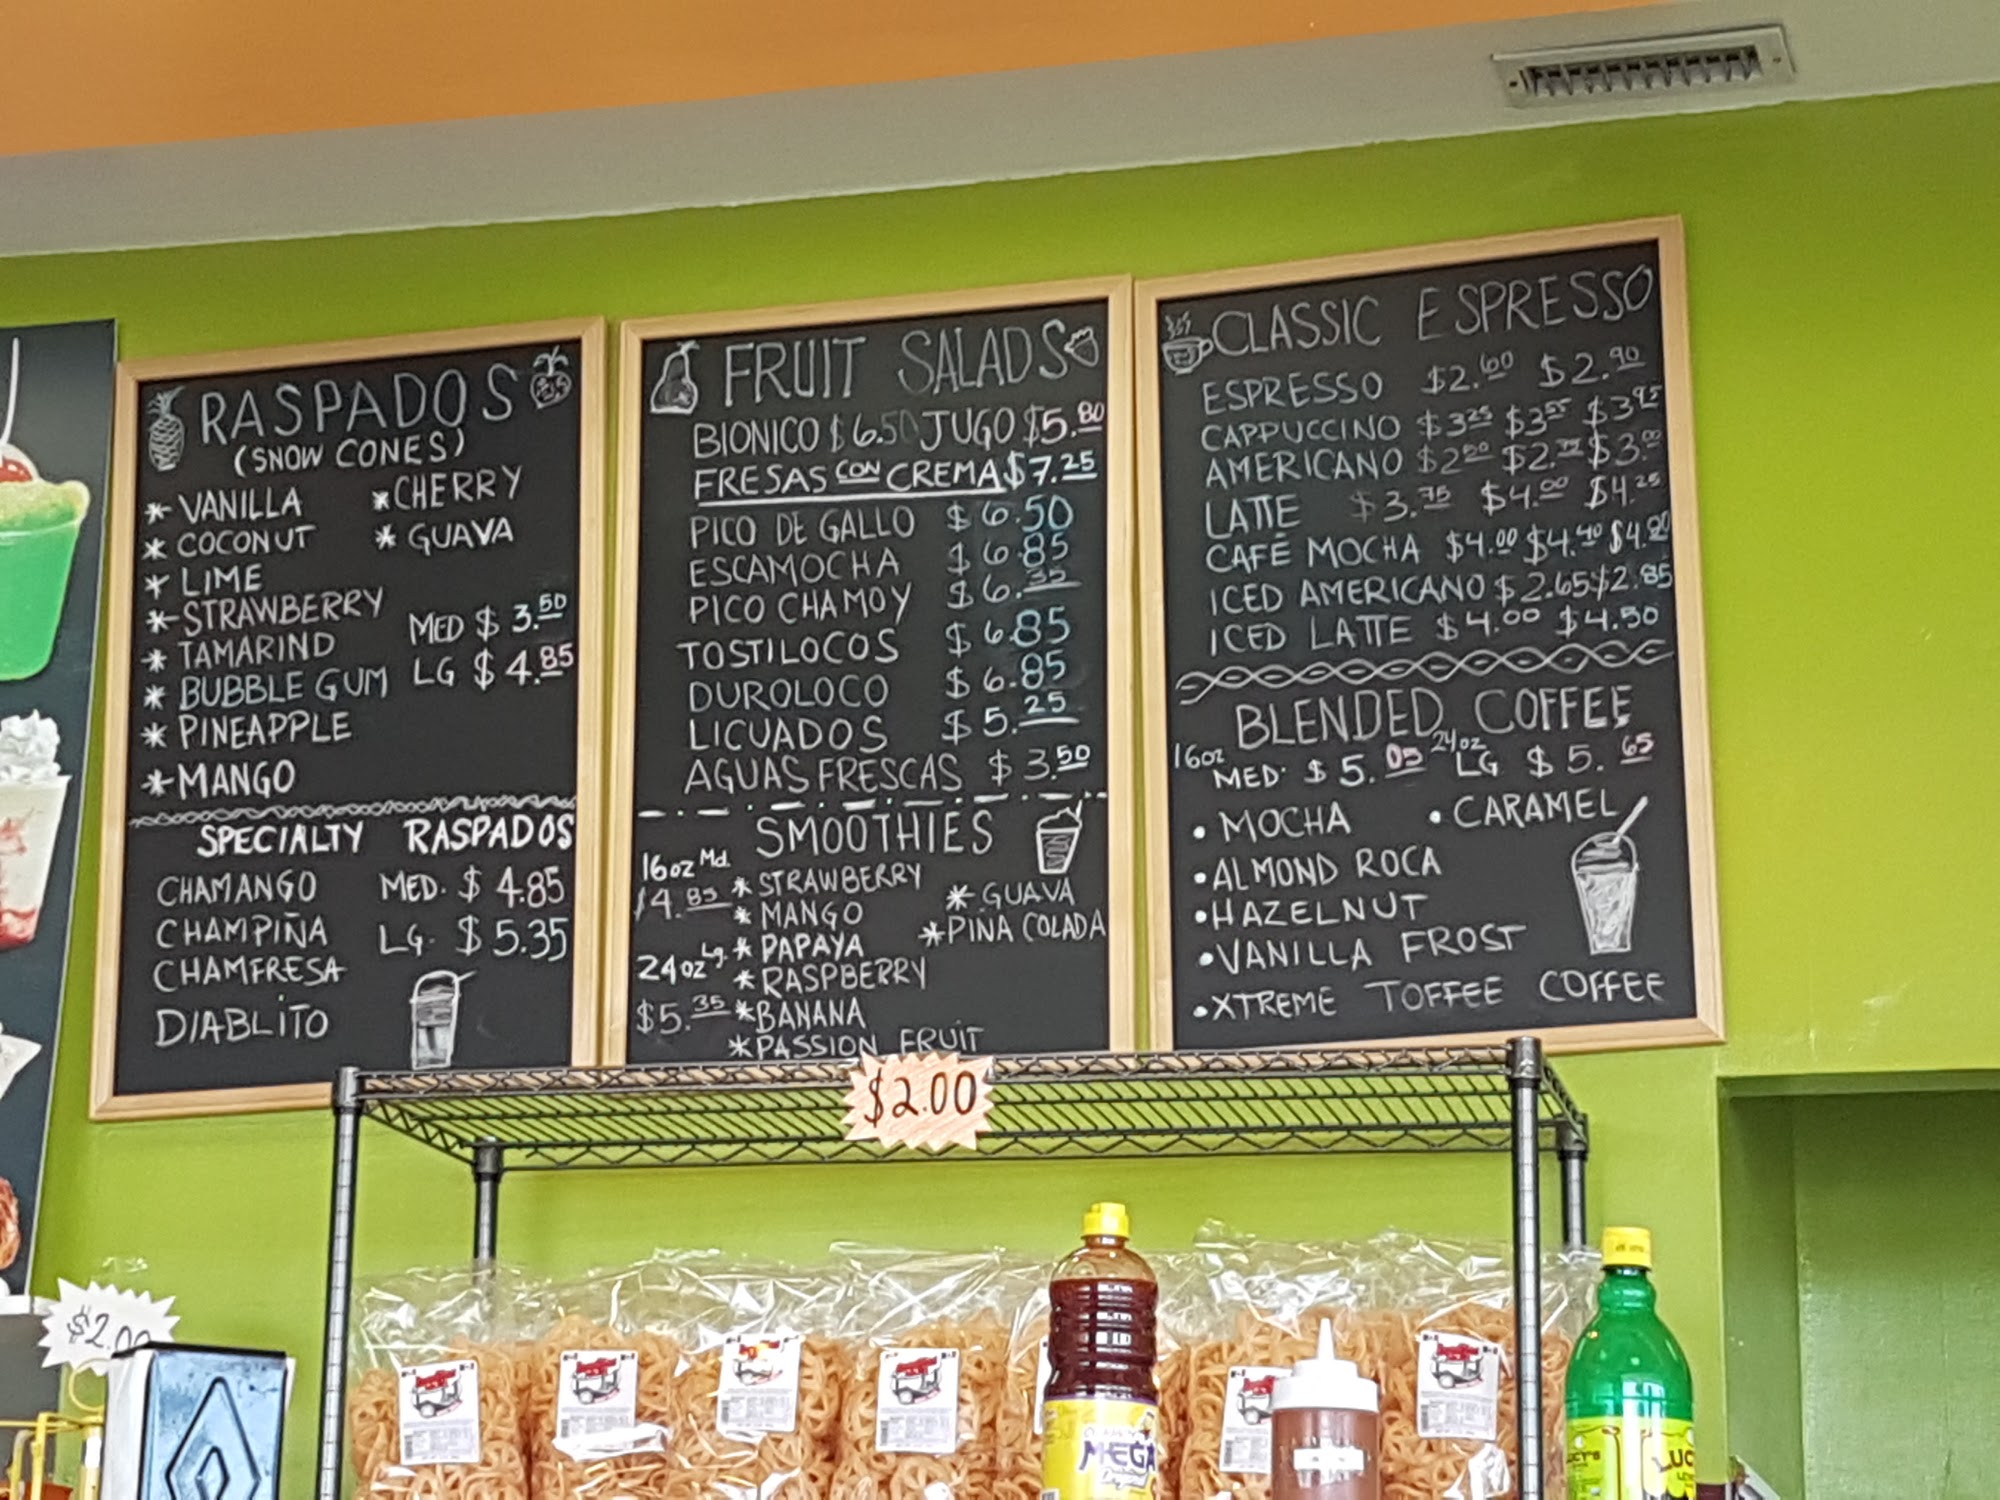 RASPADOS
(SNOW CONES)
* VANILLA * CHERRY
* COCONUT * GUAVA
* LIME
* STRAWBERRY
* TAMARIND MED $3.50
* BUBBLE GUM LG $4.85
* PINEAPPLE
* MANGO
SPECIALTY RASPADOS
CHAMANGO MED. $4.85
CHAMPIÑA LG. $5.35
CHAMFRESA
DIABLITO
FRUIT SALADS
BIONICO $6.50 JUGO $5.80
FRESAS CON CREMA $7.25
PICO DE GALLO $6.50
ESCAMOCHA $6.85
PICO CHAMOY $6.35
TOSTILOCOS $6.85
DUROLOCO $6.85
LICUADOS $5.25
AGUAS FRESCAS $3.50
SMOOTHIES
16oz Md.
$4.85
24oz Lg.
$5.35
* STRAWBERRY * GUAVA
* MANGO * PINA COLADA
* PAPAYA
* RASPBERRY
* BANANA
* PASSION FRUIT
CLASSIC ESPRESSO
ESPRESSO $2.60 $2.90
CAPPUCCINO $3.25 $3.55 $3.95
AMERICANO $2.20 $2.75 $3.00
LATTE $3.75 $4.00 $4.25
CAFÉ MOCHA $4.00 $4.40 $4.80
ICED AMERICANO $2.65 $2.85
ICED LATTE $4.00 $4.50
BLENDED COFFEE
16oz MED. $5.05 24oz LG $5.65
• MOCHA • CARAMEL
• ALMOND ROCA
• HAZELNUT
• VANILLA FROST
• XTREME TOFFEE COFFEE
$2.00
$2.00
MEGA